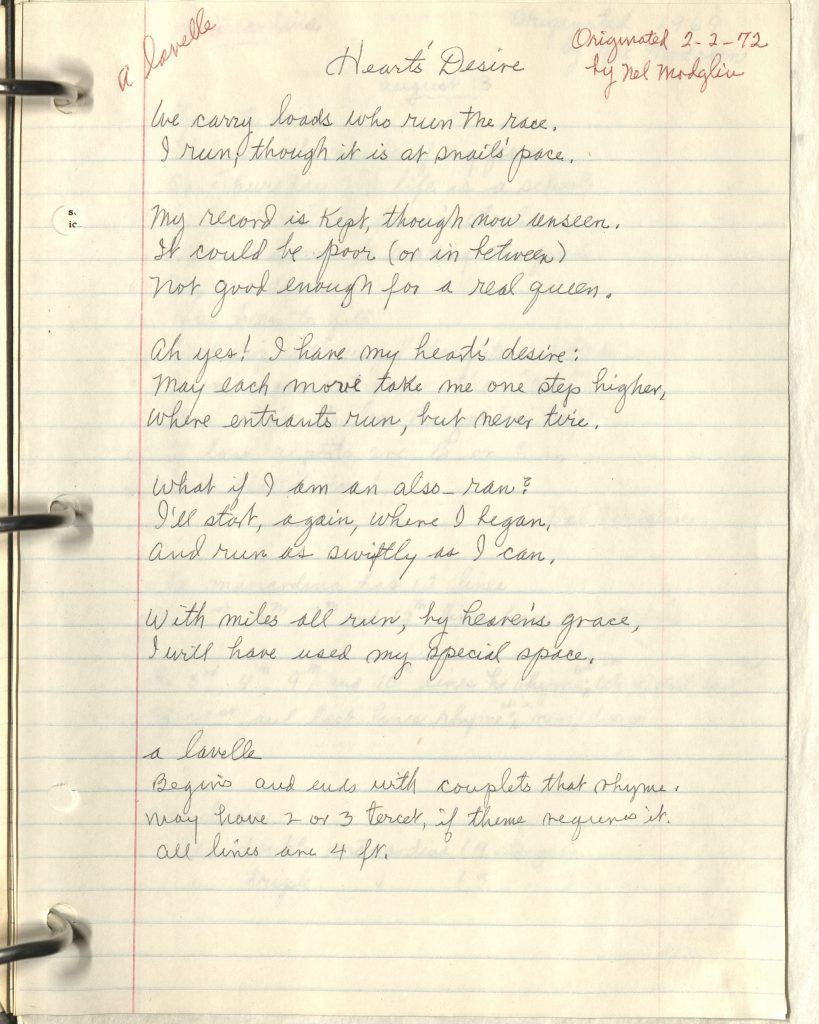 a lavelle
Heart's Desire
Originated 2-2-72
by Nel Modglin
We carry loads who run the race.
I run, though it is at snail's pace.
My record is kept, though now unseen.
It could be poor (or in between)
Not good enough for a real queen.
Ah yes! I have my heart's desire:
May each move take me one step higher,
Where entrants run, but never tire.
What if I am an also-ran?
I'll start, again, where I began,
And run as swiftly as I can.
With miles all run, by heaven's grace,
I will have used my special space.
a lavelle
Begins and ends with couplets that rhyme.
May have 2 or 3 tercet, if theme requires it.
All lines are 4 ft.
s.
ic